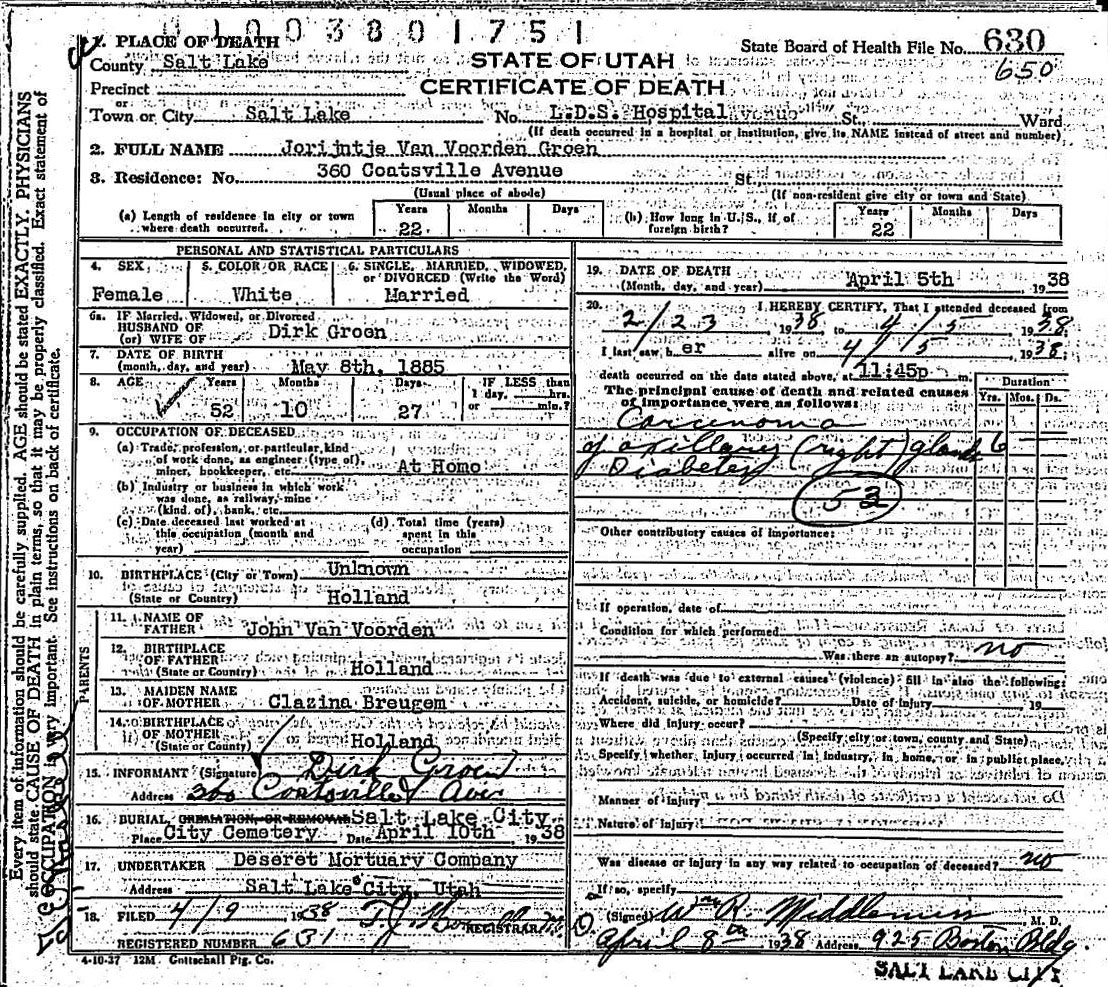 0 1 0 0 3 8 0 1 7 5 1
1. PLACE OF DEATH
County Salt Lake
Precinct
or
Town or City Salt Lake
STATE OF UTAH
CERTIFICATE OF DEATH
State Board of Health File No. 630
650
No. L.D.S. Hospital St. Ward
(If death occurred in a hospital or institution, give its NAME instead of street and number)
2. FULL NAME Jorijntje Van Voorden Groen
3. Residence: No. 360 Coatsville Avenue St.
(Usual place of abode) (If non-resident give city or town and State)
(a) Length of residence in city or town
where death occurred.
Years Months Days
22
(b) How long in U.S., if of
foreign birth?
Years Months Days
22
PERSONAL AND STATISTICAL PARTICULARS
4. SEX
Female
5. COLOR OR RACE
White
6. SINGLE, MARRIED, WIDOWED,
or DIVORCED (Write the Word)
Married
6a. IF Married, Widowed, or Divorced
HUSBAND OF
(or) WIFE OF Dirk Groen
7. DATE OF BIRTH
(month, day, and year) May 8th, 1885
8. AGE Years Months Days
52 10 27
IF LESS than
1 day, hrs.
or min.?
9. OCCUPATION OF DECEASED
(a) Trade, profession, or particular kind
of work done, as engineer (type of),
miner, bookkeeper, etc. At Home
(b) Industry or business in which work
was done, as railway, mine
(kind of), bank, etc.
(c) Date deceased last worked at
this occupation (month and
year)
(d) Total time (years)
spent in this
occupation
10. BIRTHPLACE (City or Town) Unknown
(State or Country) Holland
PARENTS
11. NAME OF
FATHER John Van Voorden
12. BIRTHPLACE
OF FATHER
(State or Country) Holland
13. MAIDEN NAME
OF MOTHER Clazina Breugem
14. BIRTHPLACE
OF MOTHER
(State or County) Holland
15. INFORMANT (Signature) Dirk Groen
Address 360 Coatsville Ave
16. BURIAL, CREMATION, OR REMOVAL Salt Lake City
Place City Cemetery Date April 10th 1938
17. UNDERTAKER Deseret Mortuary Company
Address Salt Lake City, Utah
18. FILED 4/9 1938 REGISTRAR
REGISTERED NUMBER 631
4-10-37 12M Gottschall Ptg. Co.
19. DATE OF DEATH
(Month, day, and year) April 5th 1938
20. I HEREBY CERTIFY, That I attended deceased from
2/23, 1938 to 4/5 1938
I last saw her alive on 4/5, 1938,
death occurred on the date stated above, at 11:45p m.
The principal cause of death and related causes
of importance were as follows:
Duration
Yrs. Mos. Ds.
Carcinoma
of axillary (right) glands 6
Diabetes
53
Other contributory causes of importance:
If operation, date of
Condition for which performed
Was there an autopsy? no
If death was due to external causes (violence) fill in also the following:
Accident, suicide, or homicide? Date of injury 19
Where did injury occur?
(Specify city or town, county and State)
Specify whether injury occurred in industry, in home, or in public place.
Manner of injury
Nature of injury
Was disease or injury in any way related to occupation of deceased? no
If so, specify
(Signed) Wm R. Middlemiss M. D.
April 8th 1938 Address 925 Boston Bldg.
SALT LAKE CITY
Every item of information should be carefully supplied. AGE should be stated EXACTLY. PHYSICIANS
should state CAUSE OF DEATH in plain terms, so that it may be properly classified. Exact statement of
OCCUPATION is very important. See instructions on back of certificate.